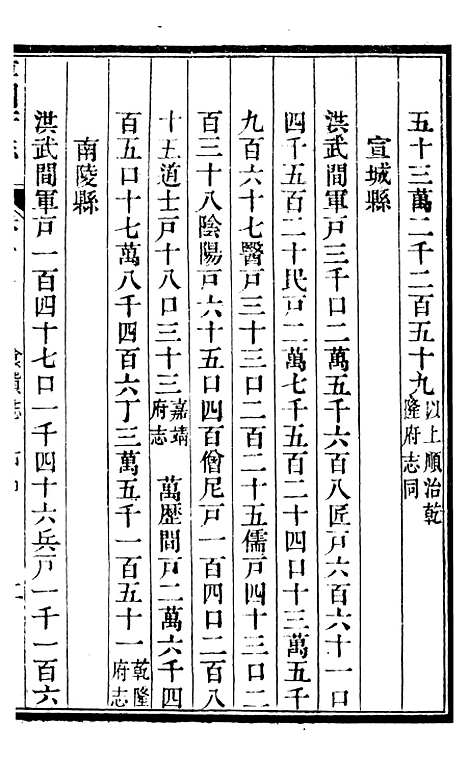 五十三萬二千二百五十九以上順治乾隆府志同
宣城縣
洪武間軍戸三千口二萬五千六百八匠戸六百六十一口
四千五百二十民戸二萬七千五百二十四口十三萬五千
九百六十七醫戸三十三口二百二十五儒戸四十三口二
百三十八陰陽戸六十五口四百僧尼戸一百四口二百八
十五道士戸十八口三十三嘉靖府志 萬歷間戸二萬六千四
百五口十七萬八千四百六丁三萬五千一百五十一乾隆府志
南陵縣
洪武間軍戸一百四十七口一千四十六兵戸一千一百六
食貨志